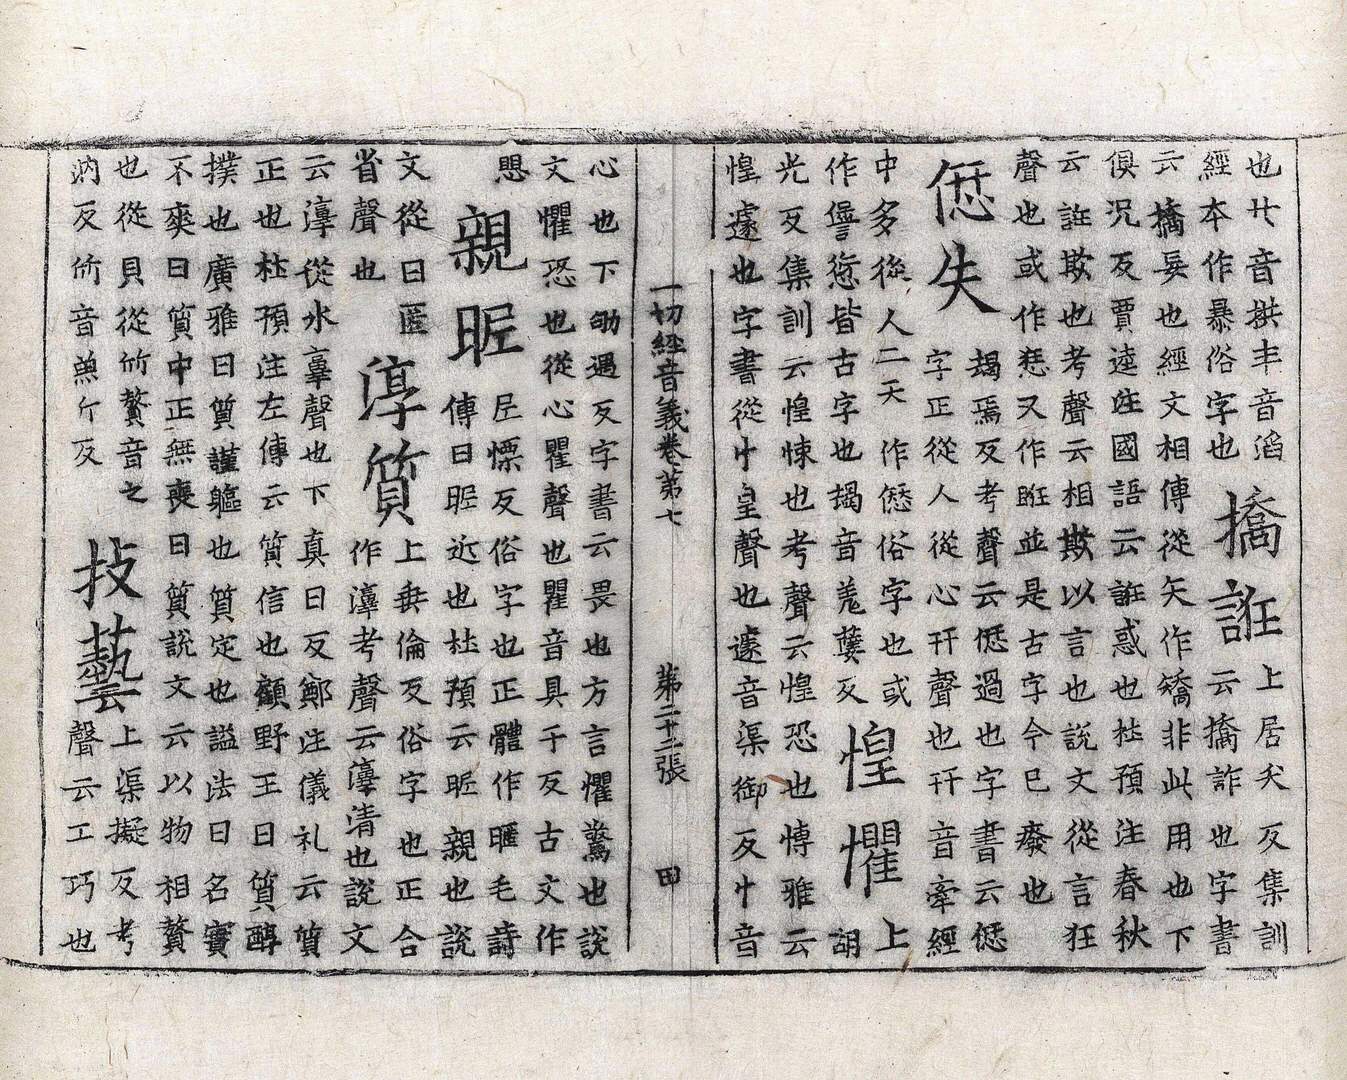 也廾音拱丰音滔
經本作暴俗字也
撟誑
上居夭反集訓
云撟詐也字書
云撟妄也經文相傳從矢作矯非此用也下
俱況反賈逵注國語云誑惑也杜預注春秋
云誑欺也考聲云相欺以言也說文從言狂
聲也或作惄又作㫛並是古字今已廢也
愆失
朅焉反考聲云愆過也字書云愆
字正從人從心幵聲也幵音牽經
中多從人二天作僁俗字也或
作諐㥶皆古字也朅音羗蘖反
惶懼
上
胡
光反集訓云惶悚也考聲云惶恐也博雅云
惶遽也字書從忄皇聲也遽音渠御反忄音
一切經音義卷第七 第二十二張 田
心也下劬遇反字書云畏也方言懼驚也說
文懼恐也從心瞿聲也瞿音具于反古文作
愳
親昵
尼慄反俗字也正體作暱毛詩
傳曰昵近也杜預云昵親也說
文從日匿
省聲也
淳質
上垂倫反俗字也正合
作𣹡考聲云淳清也說文
云淳從水𦎫聲也下真日反鄭注儀礼云質
正也杜預注左傳云質信也顧野王曰質醇
撲也廣雅曰質謹軀也質定也謚法曰名實
不爽曰質中正無喪曰質說文云以物相贅
也從貝從斦贅音之
汭反斦音無斤反
技藝
上渠擬反考
聲云工巧也